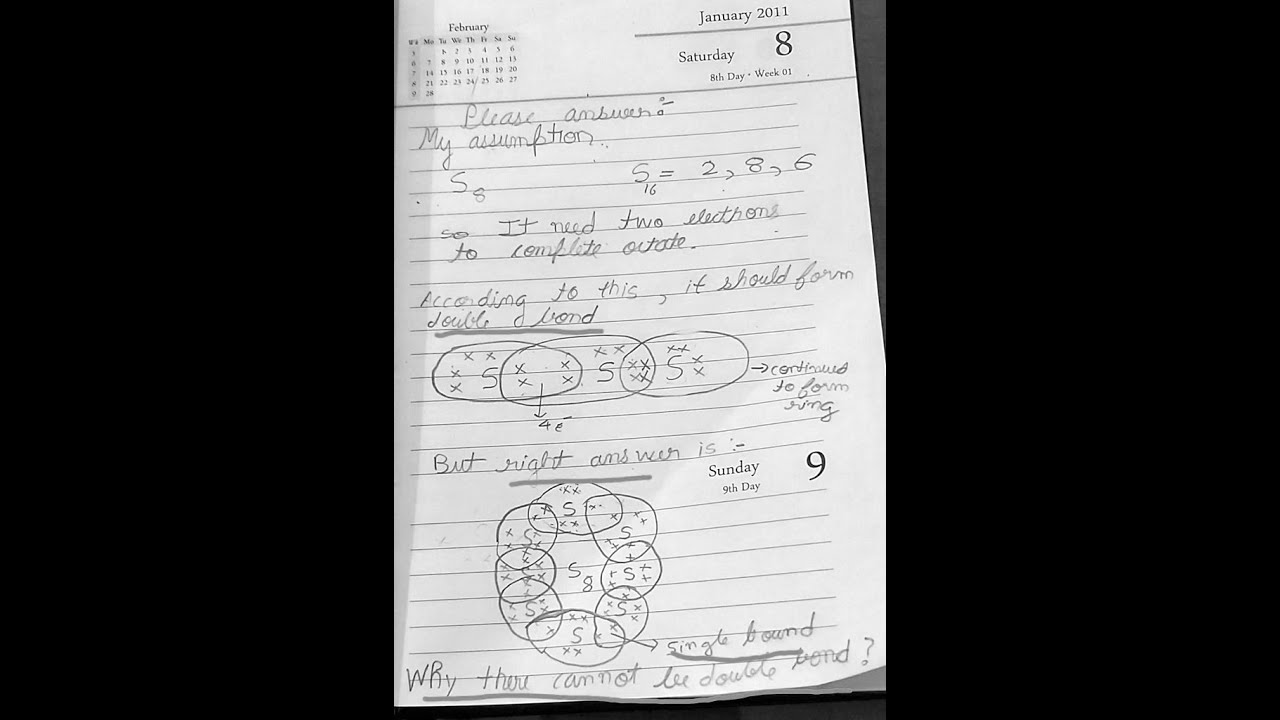 January 2011
February
Wk Mo Tu We Th Fr Sa Su
5 1 2 3 4 5 6
6 7 8 9 10 11 12 13
7 14 15 16 17 18 19 20
8 21 22 23 24 25 26 27
9 28
Saturday 8
8th Day • Week 01
Please answer:-
My assumption..
S8 16S = 2, 8, 6
so It need two electrons
to complete octate.
According to this, it should form
double bond
S S S → continued
to form
ring
4e-
But right answer is :-
Sunday 9
9th Day
S
S S
S S8 S
S S
S → single bound
Why there cannot be double bond?